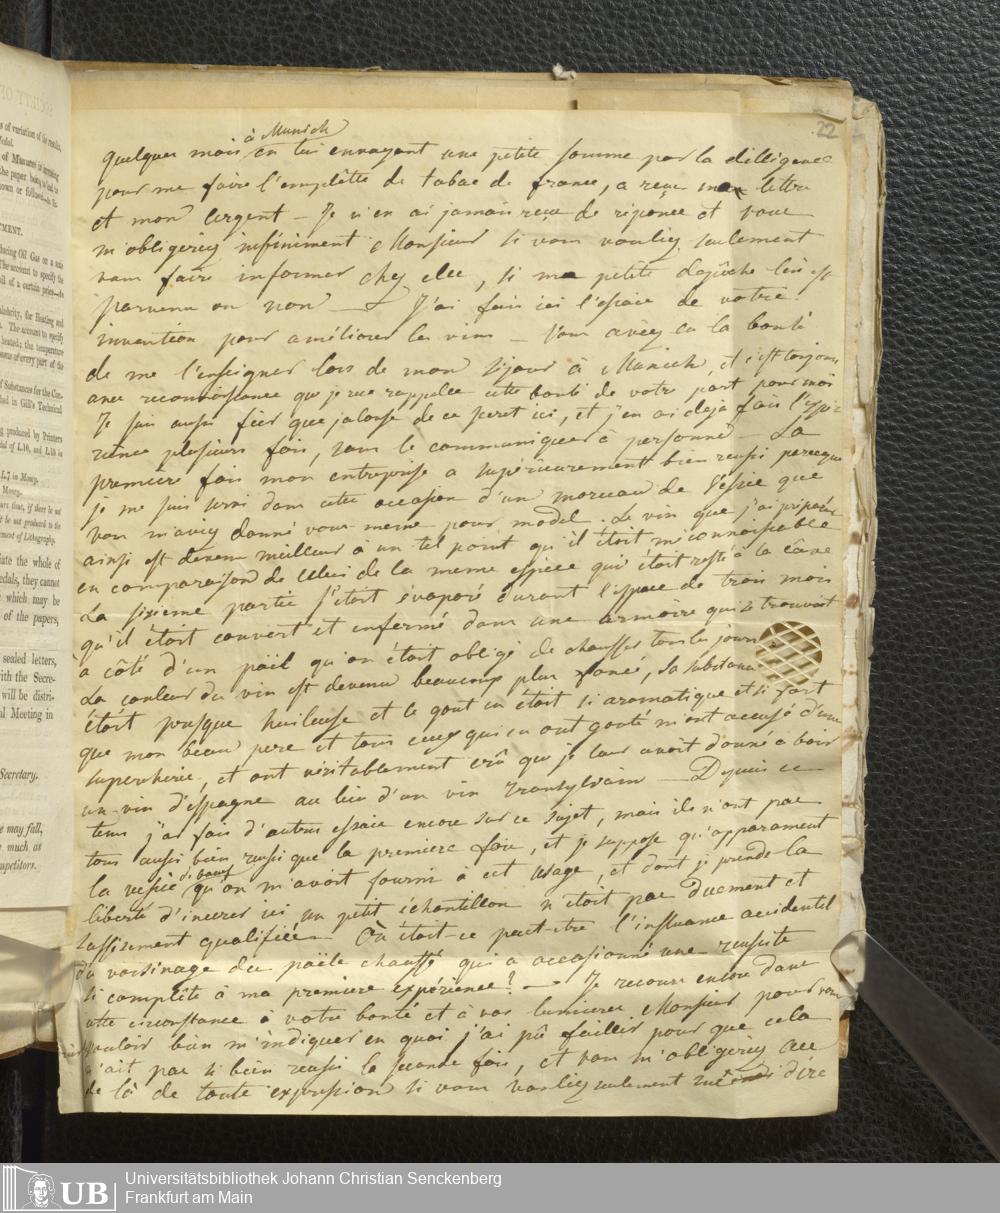 22
à Munich
quelques mois en lui envoyant une petite somme par la dilligence
pour me faire l'emplêtte de tabac de france, a reçu ma lettre
et mon argent – Je n'en ai jamais reçu de réponce et vous
m'obligeriez infiniment Monsieur si vous vouliez seulement
vous faire informer chez elle, si ma petite depêche lui est
parvenu ou non – J'ai fais ici l'essaie de votre
invention pour améliorer les vins – Vous aviez eu la bonté
de me l'enseigner lors de mon séjour à Munich, et c'est toujours
avec reconnoissance que je me rappelle cette bonté de votre part pour moi
Je suis aussi fier que jalouse de ce secret ici, et j'en ai deja fais l'expé-
rience plusieurs fois, sans le communiquer à personne – La
premiere fois mon entreprise a supérieurement bien reussi parceque
je me suis servi dans cette occasion d'un morceau de l'espece que
vous m'aviez donné vous meme pour model. Le vin que j'ai préparé
ainsi est devenu meilleur à un tel point qu'il étoit méconnoissable
en comparaison de celui de la meme espece qui étoit resté à la câve
La sixieme partie s'étoit évaporé durant l'espace de trois mois
qu'il étoit couvert et enfermé dans une armoire qui se trouvoit
à côté d'un poël qu'on étoit obligé de chauffer tous les jours
La couleur du vin est devenu beaucoup plus foncé, sa substance
étoit presque huileuse et le gout en étoit si aromatique et si fort
que mon beau pere et tous ceux qui en ont gouté m'ont accusé d'une
supercherie, et ont véritablement crû que je leur avoit donné à boir
un vin d'espagne au lieu d'un vin transylvain – Depuis ce
tems j'ai fais d'autres essaie encore sur ce sujet, mais ils n'ont pas
tous aussi bien reussi que la premiere fois, et je suppose qu'apparament
la vessie d. boeuf qu'on m'avoit fourni à cet usage, et dont je prends la
liberté d'inserer ici un petit échantillon n'étoit pas duement et
suffisement qualifiée – Où étoit-ce peut-être l'influance accidentel
du voisinage du poële chauffé qui a occasionné une reussite
si complête à ma premiere expérience? – Je recours encore dans
cette circonstance à votre bonté et à vos lumieres Monsieur pour
vouloir bien m'indiquer en quoi j'ai pû failler pour que cela
n'ait pas si bien reussi la seconde fois, et vous m'obligeriez au
de là de toute expression si vous vouliez seulement me dire
s of variation of the results.
Medal.
of Manures
the paper being
nown or followed
MENT.
ducing Oil Gas on a scale
The account to specify the
oil of a certain price
for Heating and
The account to specify
heated; the temperature
of every part of the
of Substances for the Con-
in Gill's Technical
produced by Printers
of L.10, and L.15 in
L.7 in Money.
Money.
if there be not
be not produced to the
of Lithography.
iate the whole of
edals, they cannot
which may be
of the papers,
sealed letters,
ith the Secre-
will be distri-
al Meeting in
Secretary.
e may fall,
much as
mpetitors.
UB
Universitätsbibliothek Johann Christian Senckenberg
Frankfurt am Main